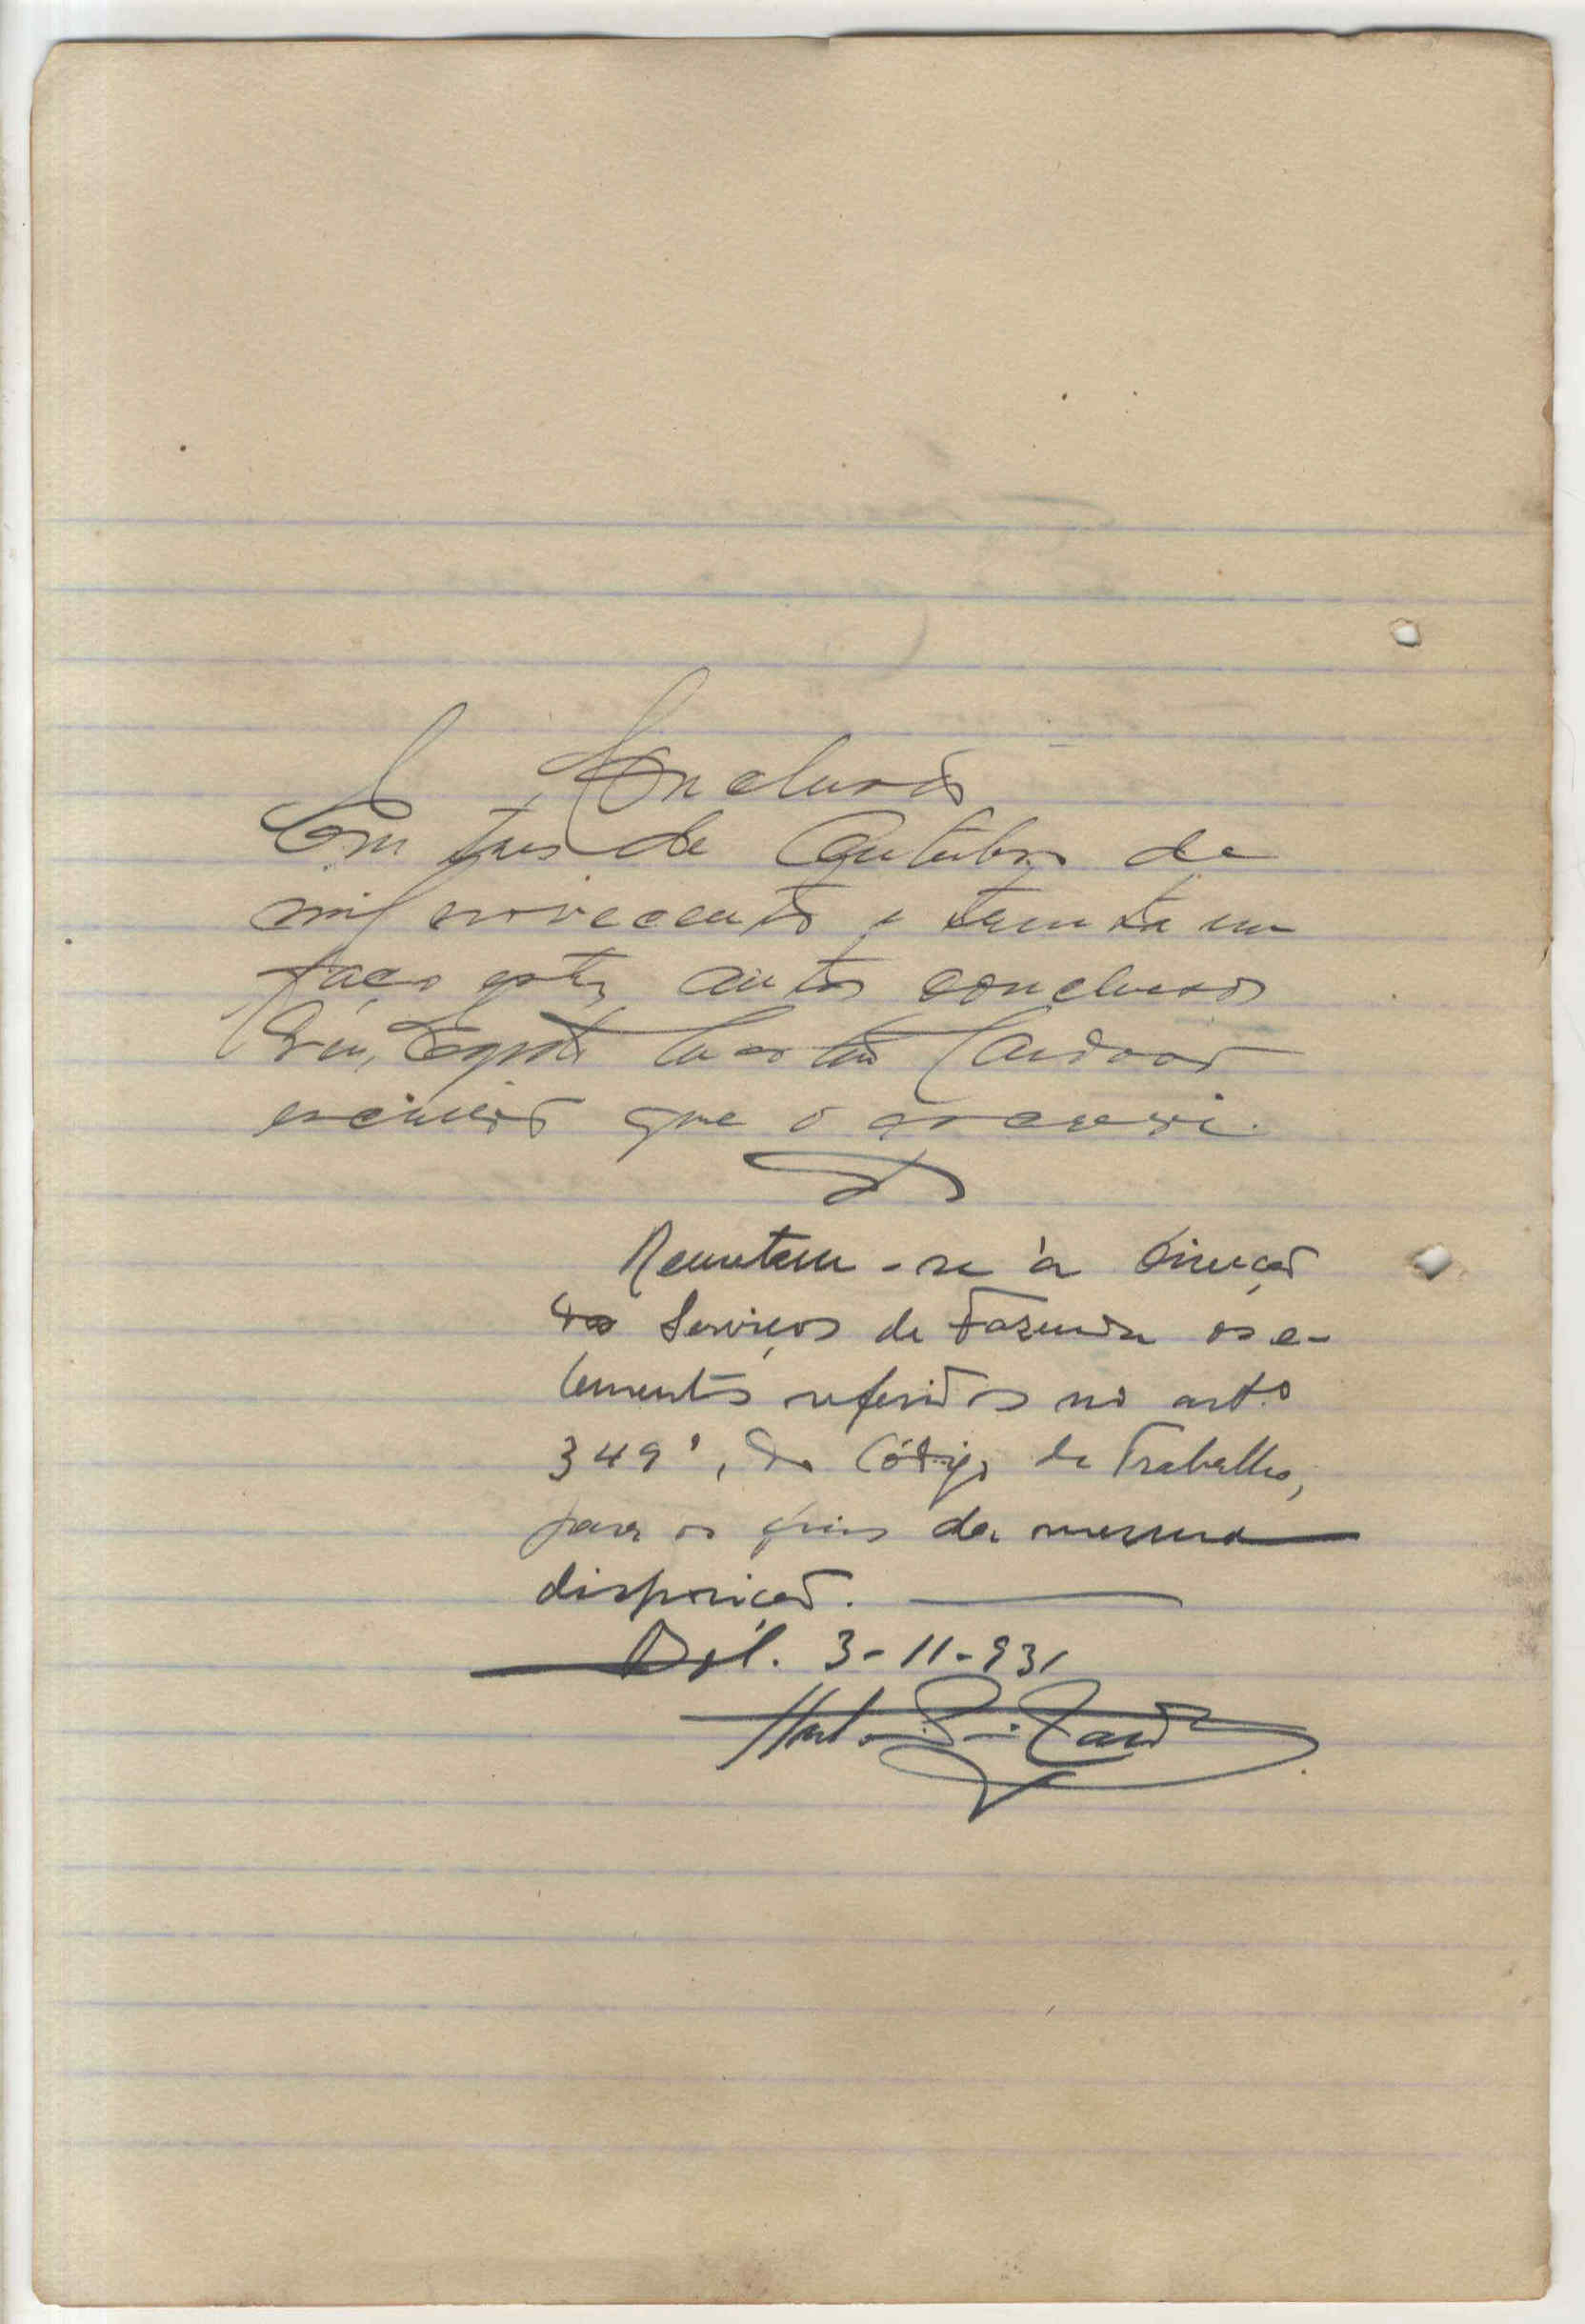 Conclusão
Em tres de Outubro de
mil novecentos e trinta um
faço estes autos conclusos
Eu, Cardoso
escrivão que o escrevi.
Remetam-se à Direcção
dos Serviços de Fazenda os e-
lementos referidos no art.º
349º, do Código de Trabalho,
para os fins da mesma
disposição.
Dgl. 3-11-931